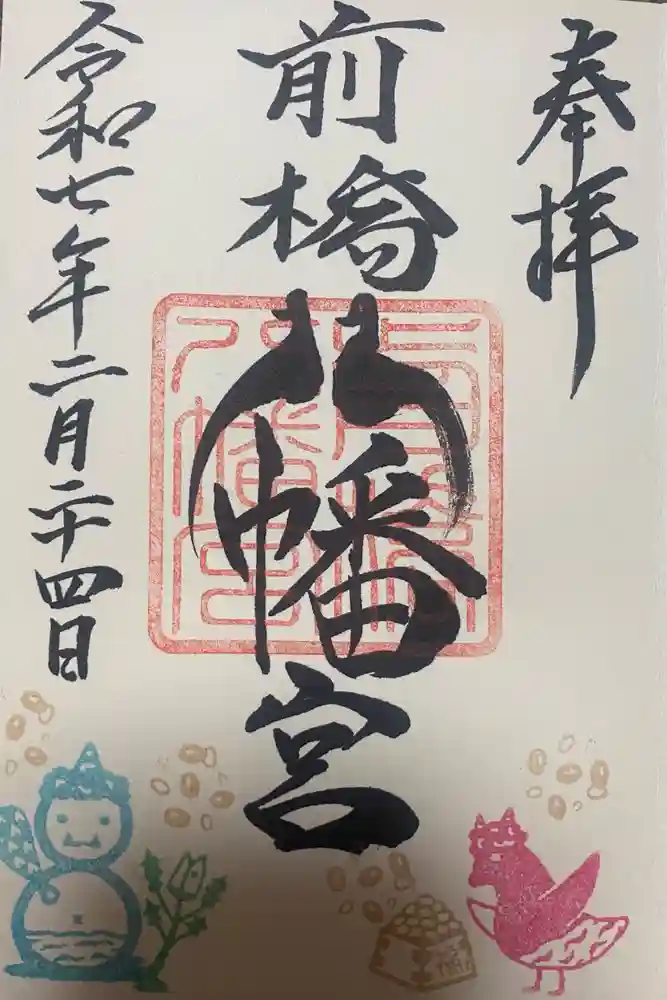 奉拝
前橋八幡宮
令和七年二月二十四日